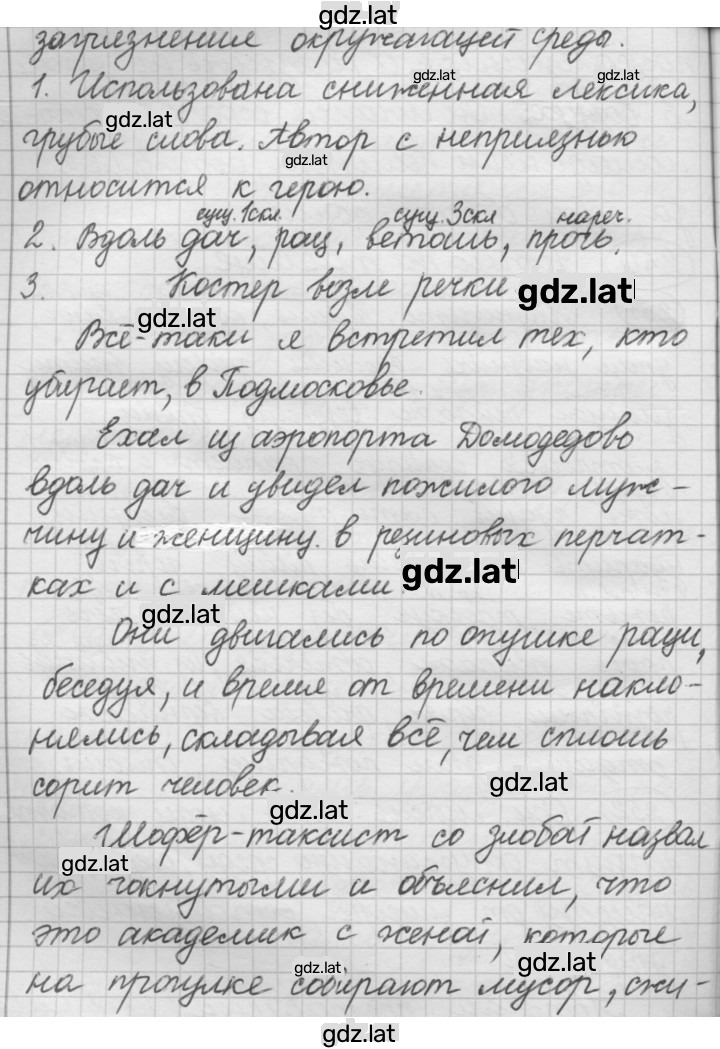 gdz.lat
загрязнения окружающей среды.
gdz.lat gdz.lat
1. Использована сниженная лексика,
gdz.lat
грубые слова. Автор с неприязнью
gdz.lat
относится к герою.
сущ. 1скл. сущ. 3скл нареч.
2. Вдоль дач, рощ, ветошь, прочь.
3. Костер возле речки gdz.lat
gdz.lat
Всё-таки я встретил тех, кто
убирает, в Подмосковье.
Ехал из аэропорта Домодедово
вдоль дач и увидел пожилого муж-
чину и женщину в резиновых перчат-
ках и с мешками gdz.lat
gdz.lat
Они двигались по опушке рощи,
беседуя, и время от времени накло-
нялись, складывая всё, чем сплошь
сорит человек. gdz.lat
gdz.lat
Шофёр-таксист со злобой назвал
gdz.lat
их чокнутыми и объяснил, что
это академик с женой, которые
gdz.lat gdz.lat
на прогулке собирают мусор, сжи-
gdz.lat